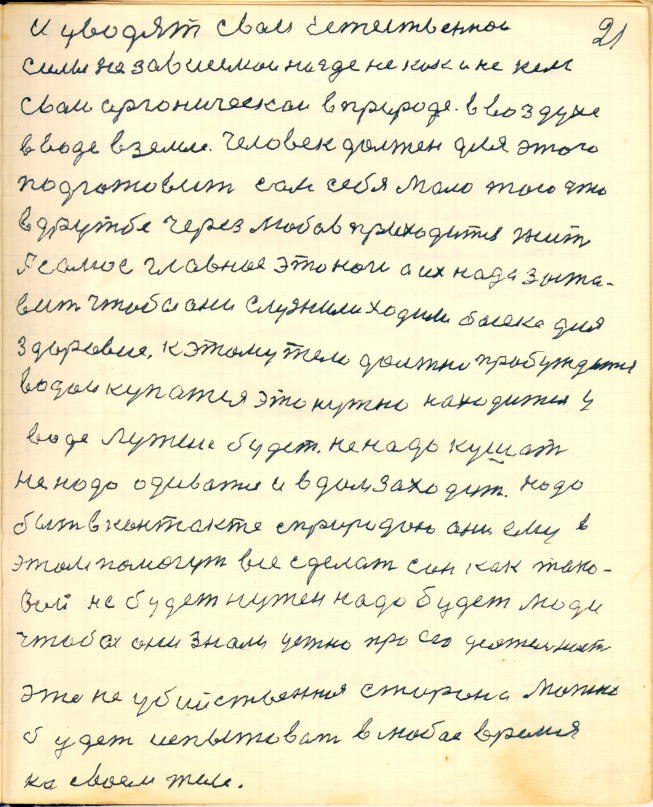 21
и уводят свой естественной
силы независимой нигде не как и не кем
свой органической в природе. в воздухе
в воде в земле. Человек должен для этого
подготовит сам себя мало того что
в дружбе через любов приходится жит
Я самое главное это ноги а их нада застa-
вит чтобы они служили ходили босека для
здоровие. к этому тело должно пробуждатся
водой купатся это нужно находится у
воде лучше будет. не надо кушат
не надо одеватся и в дом заходит. надо
быт в контакте с природою они ему в
этом помогут все сделат сон как тако-
вый не будет нужен надо будет люди
чтобы они знали устно про его деятелность
это не убийственная сторона можно
будет испытоват в любое время
на своем теле.